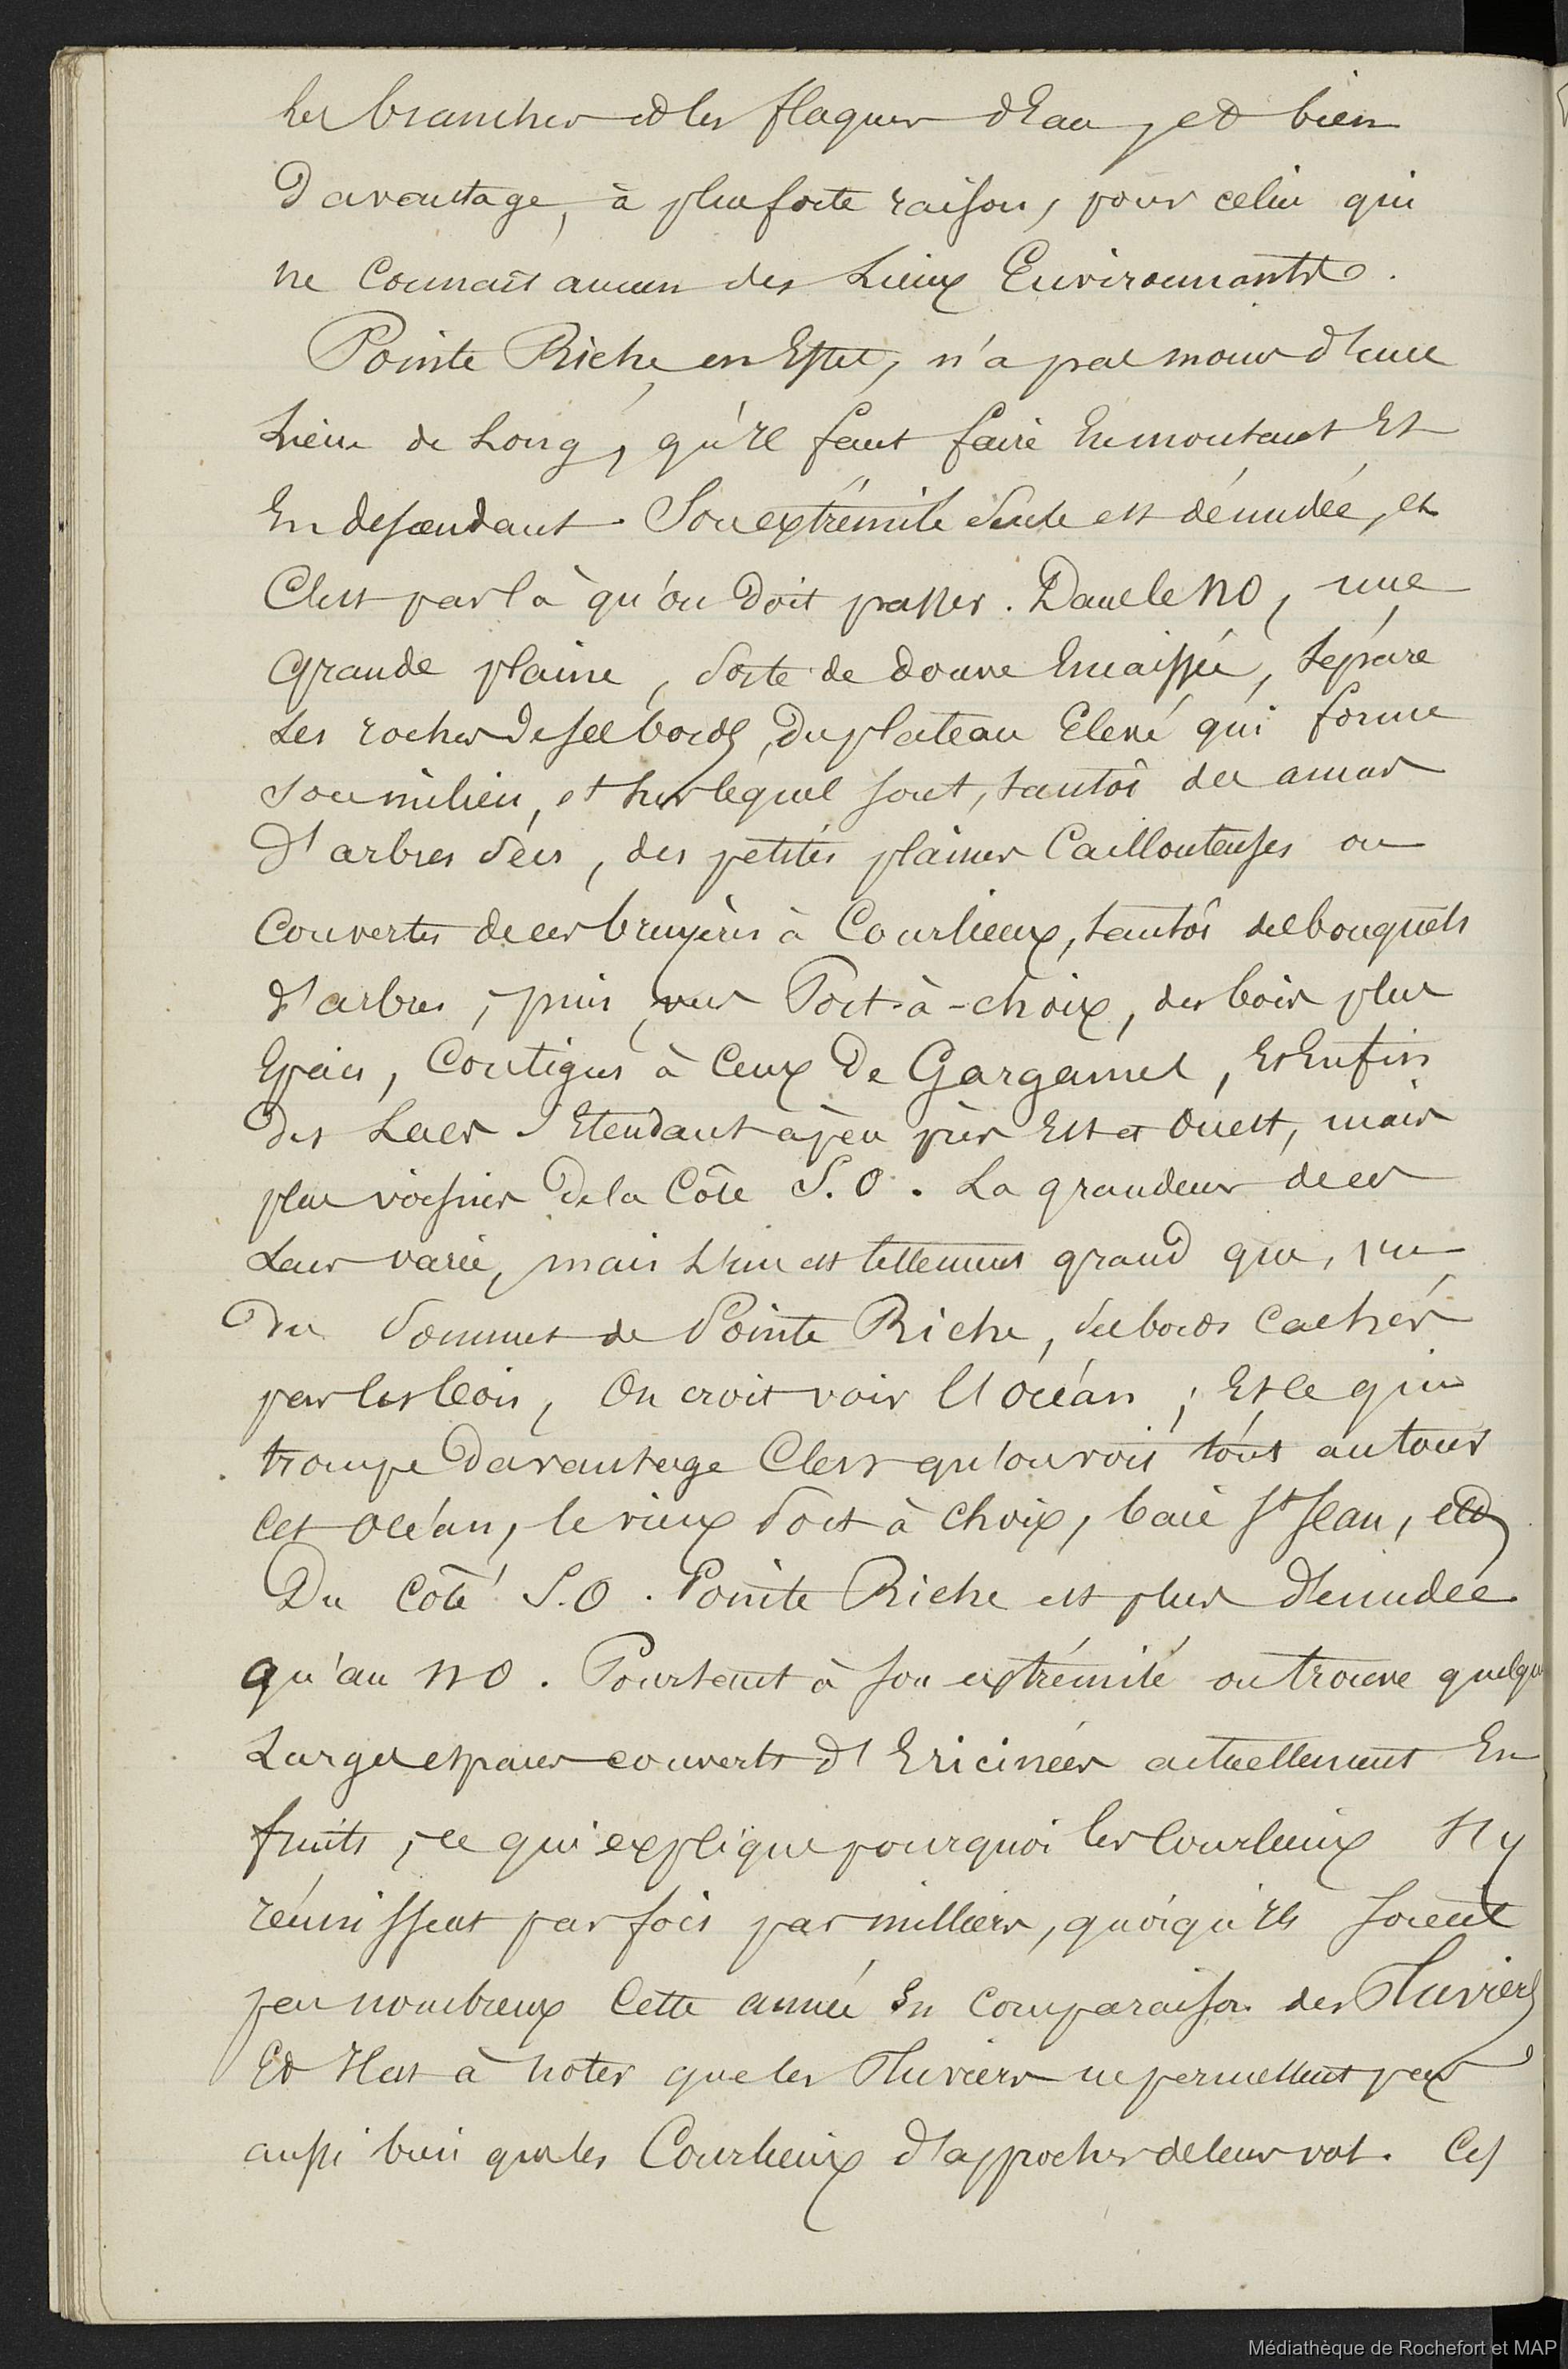 les branches et les flaques d'Eau, et bien
Davantage, à plus forte raison, pour celui qui
ne Connait aucun des Lieux Environnants.
Pointe Riche, en Effet, n'a pas moins d'une
Lieue de Long, qu'Il faut faire En montant Et
En descendant. Son extrémité seule est dénudée, et
C'est par là qu'on Doit passer. Dans le NO, une
Grande plaine, sorte de douve Encaissée, Sépare
Les rochers de ses bords, Du plateau Elevé qui forme
son milieu, et sur lequel sont, tantôt des amas
D'arbres secs, des petites plaines Caillouteuses ou
Couvertes de ces bruyères à Courlieux, tantôt des bouquets
d'arbres, puis, vers Port-à-choix, des bois plus
Epais, Contigus à Ceux De Gargamel, Et Enfin
Des Lacs s'Etendant à peu près Est et Ouest, mais
plus voisins De la Côte S.O. La grandeur de ces
Lacs varie, mais L'un est tellement grand que, vu
Du Sommet de Pointe Riche, ses bords Cachés
par les bois, On croit voir l'Océan; Et ce qui
trompe Davantage C'est qu'on voit tout autour
Cet Océan, le vieux Port à Choix, baie St Jean, etc
Du Côté S.O. Pointe Riche est plus dénudée
qu'au NO. Pourtant à son extrémité on trouve quelqu
Larges espaces couverts d'Ericinées actuellement En
fruits, ce qui explique pourquoi les Courlieux s'y
réunissent parfois par milliers, quoiqu'Ils soient
peu nombreux Cette année En Comparaison des Pluviers
Et Il est à noter que les Pluviers ne permettent pas
aussi bien que les Courlieux d'approcher de leur vol. Ces
Médiathèque de Rochefort et MAP